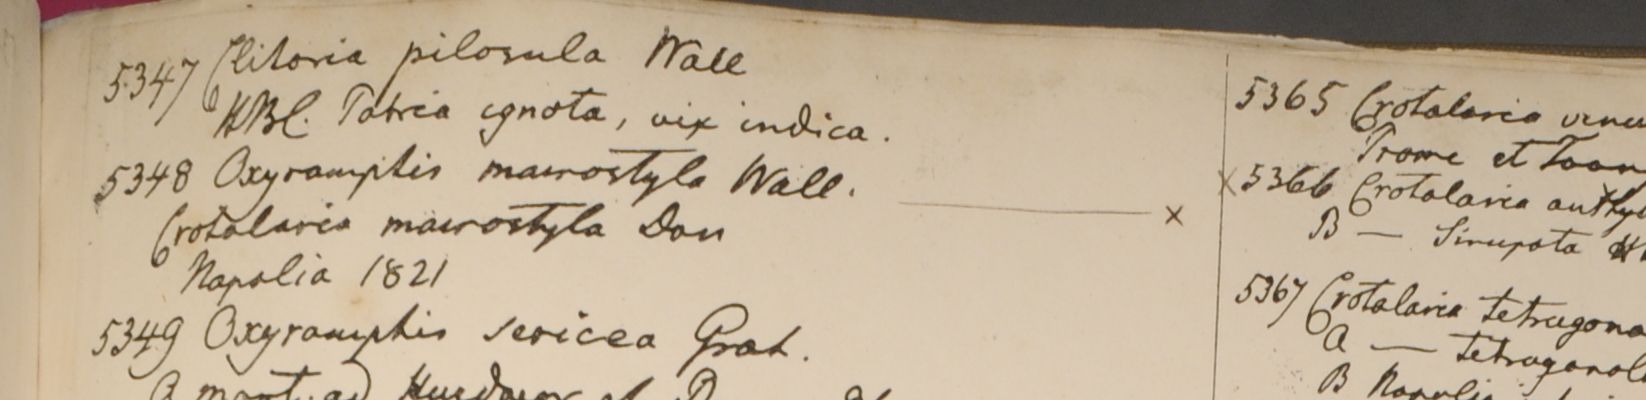 5347 Clitoria pilosula Wall
HBC. Patria ignota, vix indica.
5348 Oxyramphis macrostyla Wall.
Crotalaria macrostyla Don
Napalia 1821
5349 Oxyramphis sericea Grah.
5365 Crotalaria
Prome et
5366 Crotalaria
B —
5367 Crotalaria tetragona
a —
B Napalia